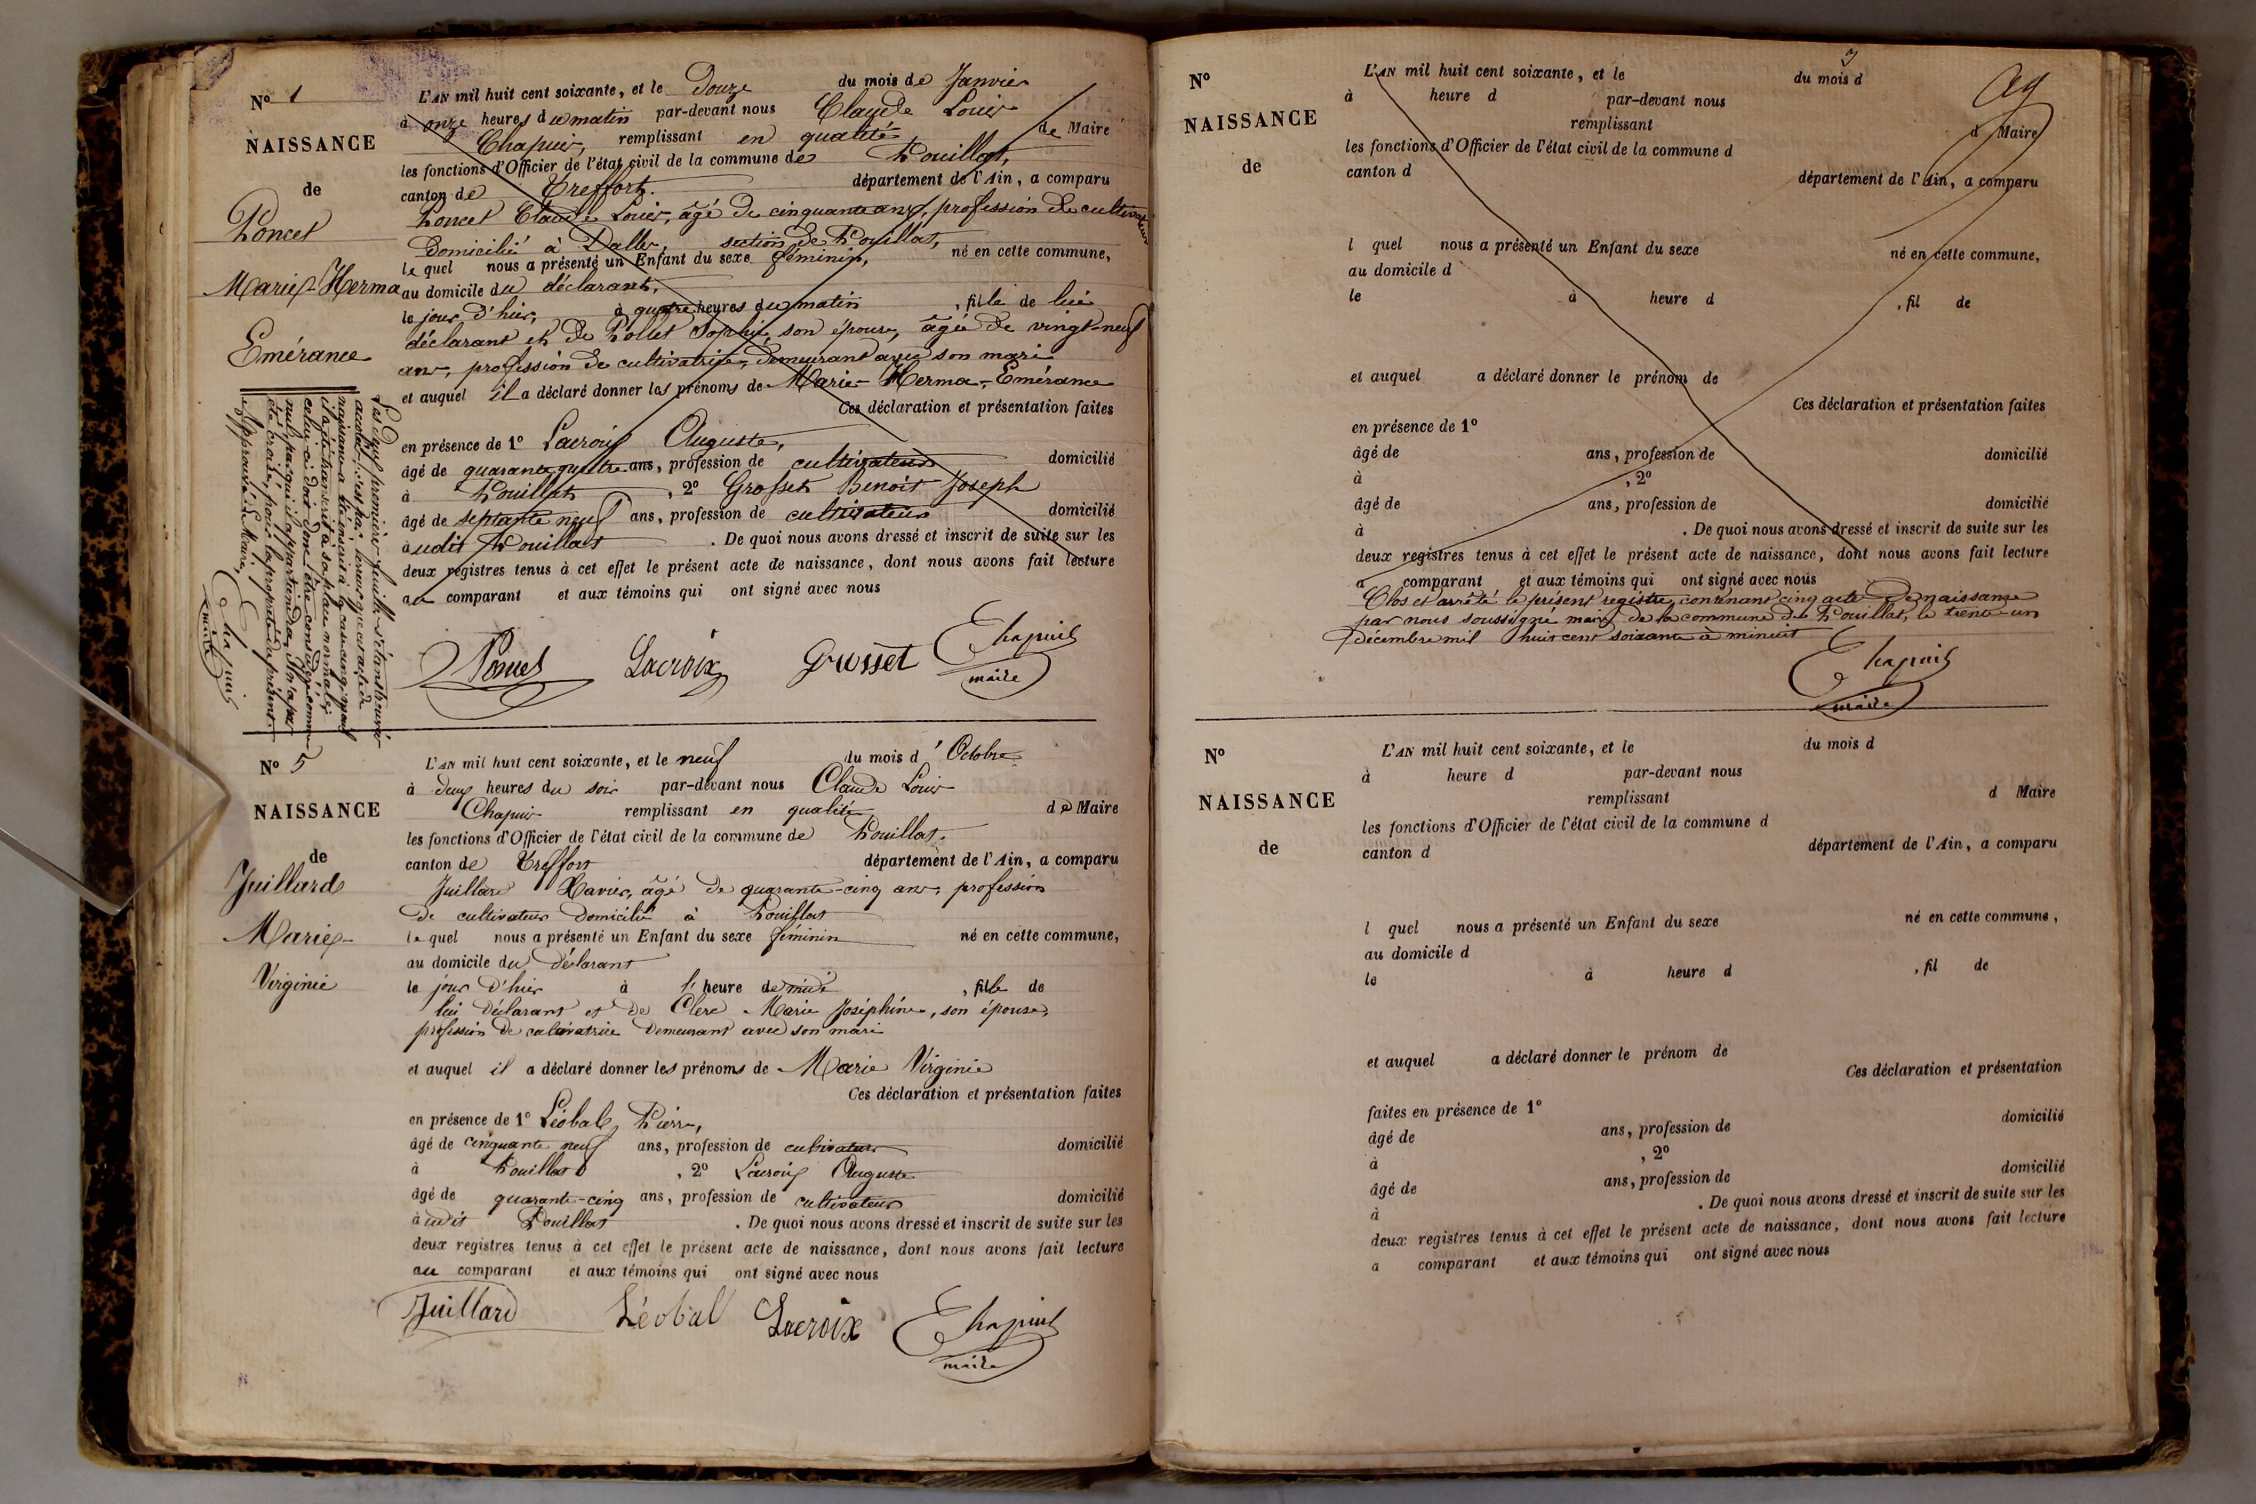 N° 1
NAISSANCE
de
Poncet
Marie-Herma
Emérance
L'AN mil huit cent soixante, et le Douze du mois de Janvier
à onze heures du matin par-devant nous Claude Louis
Chapuis, remplissant en qualité de Maire
les fonctions d'Officier de l'état civil de la commune de Pouillat,
canton de Treffort. département de l'Ain, a comparu
Poncet Claude Louis, âgé de cinquante ans, profession de cultivateur
Domicilié à Dalles, section de Pouillat,
lequel nous a présenté un Enfant du sexe féminin, né en cette commune,
au domicile du déclarant,
le jour d'hier, à quatre heures du matin, fille de lui
déclarant et de Pollet Sophie, son épouse, âgée de vingt-neuf
ans, profession de cultivatrice, demeurant avec son mari
et auquel il a déclaré donner les prénoms de Marie-Herma-Emérance
Ces déclaration et présentation faites
en présence de 1° Lacroix Auguste,
âgé de quarante quatre ans, profession de cultivateur domicilié
à Pouillat, 2° Grosset Benoit Joseph
âgé de septante neuf ans, profession de cultivateur domicilié
à udit Pouillat. De quoi nous avons dressé et inscrit de suite sur les
deux registres tenus à cet effet le présent acte de naissance, dont nous avons fait lecture
au comparant et aux témoins qui ont signé avec nous
Poncet Lacroix Grosset Chapuis
maire
Les deux premières feuilles s'étant trouvé
accolées, c'est par l'acte de
naissance a été inscrit à la case cinq; mais
il a été transcrit à sa place normale;
celui-ci doit donc être considéré comme
nul
Approuvé: Le Maire,
Chapuis
maire
N° 5
NAISSANCE
de
Juillard
Marie-
Virginie
L'AN mil huit cent soixante, et le neuf du mois d'Octobre
à deux heures du soir par-devant nous Claude Louis
Chapuis remplissant en qualité de Maire
les fonctions d'Officier de l'état civil de la commune de Pouillat.
canton de Treffort département de l'Ain, a comparu
Juillard Xavier, âgé de quarante-cinq ans, profession
de cultivateur domicilié à Pouillat
lequel nous a présenté un Enfant du sexe féminin né en cette commune,
au domicile du déclarant
le jour d'hier à l'heure de midi, fille de
lui déclarant et de Clerc Marie Joséphine, son épouse,
profession de cultivatrice demeurant avec son mari
et auquel il a déclaré donner les prénoms de Marie Virginie
Ces déclaration et présentation faites
en présence de 1° Léobal Pierre,
âgé de cinquante neuf ans, profession de cultivateur domicilié
à Pouillat, 2° Lacroix Auguste
âgé de quarante-cinq ans, profession de cultivateur domicilié
à udit Pouillat. De quoi nous avons dressé et inscrit de suite sur les
deux registres tenus à cet effet le présent acte de naissance, dont nous avons fait lecture
au comparant et aux témoins qui ont signé avec nous
Juillard Léobal Lacroix Chapuis
maire
3
N°
NAISSANCE
de
L'AN mil huit cent soixante, et le du mois d
à heure d par-devant nous
remplissant d Maire
les fonctions d'Officier de l'état civil de la commune d
canton d département de l'Ain, a comparu
l quel nous a présenté un Enfant du sexe né en cette commune,
au domicile d
le à heure d , fil de
et auquel a déclaré donner le prénom de
Ces déclaration et présentation faites
en présence de 1°
âgé de ans, profession de domicilié
à , 2°
âgé de ans, profession de domicilié
à . De quoi nous avons dressé et inscrit de suite sur les
deux registres tenus à cet effet le présent acte de naissance, dont nous avons fait lecture
a comparant et aux témoins qui ont signé avec nous
Clos et arrêté le présent registre, contenant cinq actes de naissance
par nous soussigné maire de la commune de Pouillat, le trente-un
décembre mil huit cent soixante à minuit
Chapuis
maire
N°
NAISSANCE
de
L'AN mil huit cent soixante, et le du mois d
à heure d par-devant nous
remplissant d Maire
les fonctions d'Officier de l'état civil de la commune d
canton d département de l'Ain, a comparu
l quel nous a présenté un Enfant du sexe né en cette commune,
au domicile d
le à heure d , fil de
et auquel a déclaré donner le prénom de
Ces déclaration et présentation
faites en présence de 1°
âgé de ans, profession de domicilié
à , 2°
âgé de ans, profession de domicilié
à . De quoi nous avons dressé et inscrit de suite sur les
deux registres tenus à cet effet le présent acte de naissance, dont nous avons fait lecture
a comparant et aux témoins qui ont signé avec nous